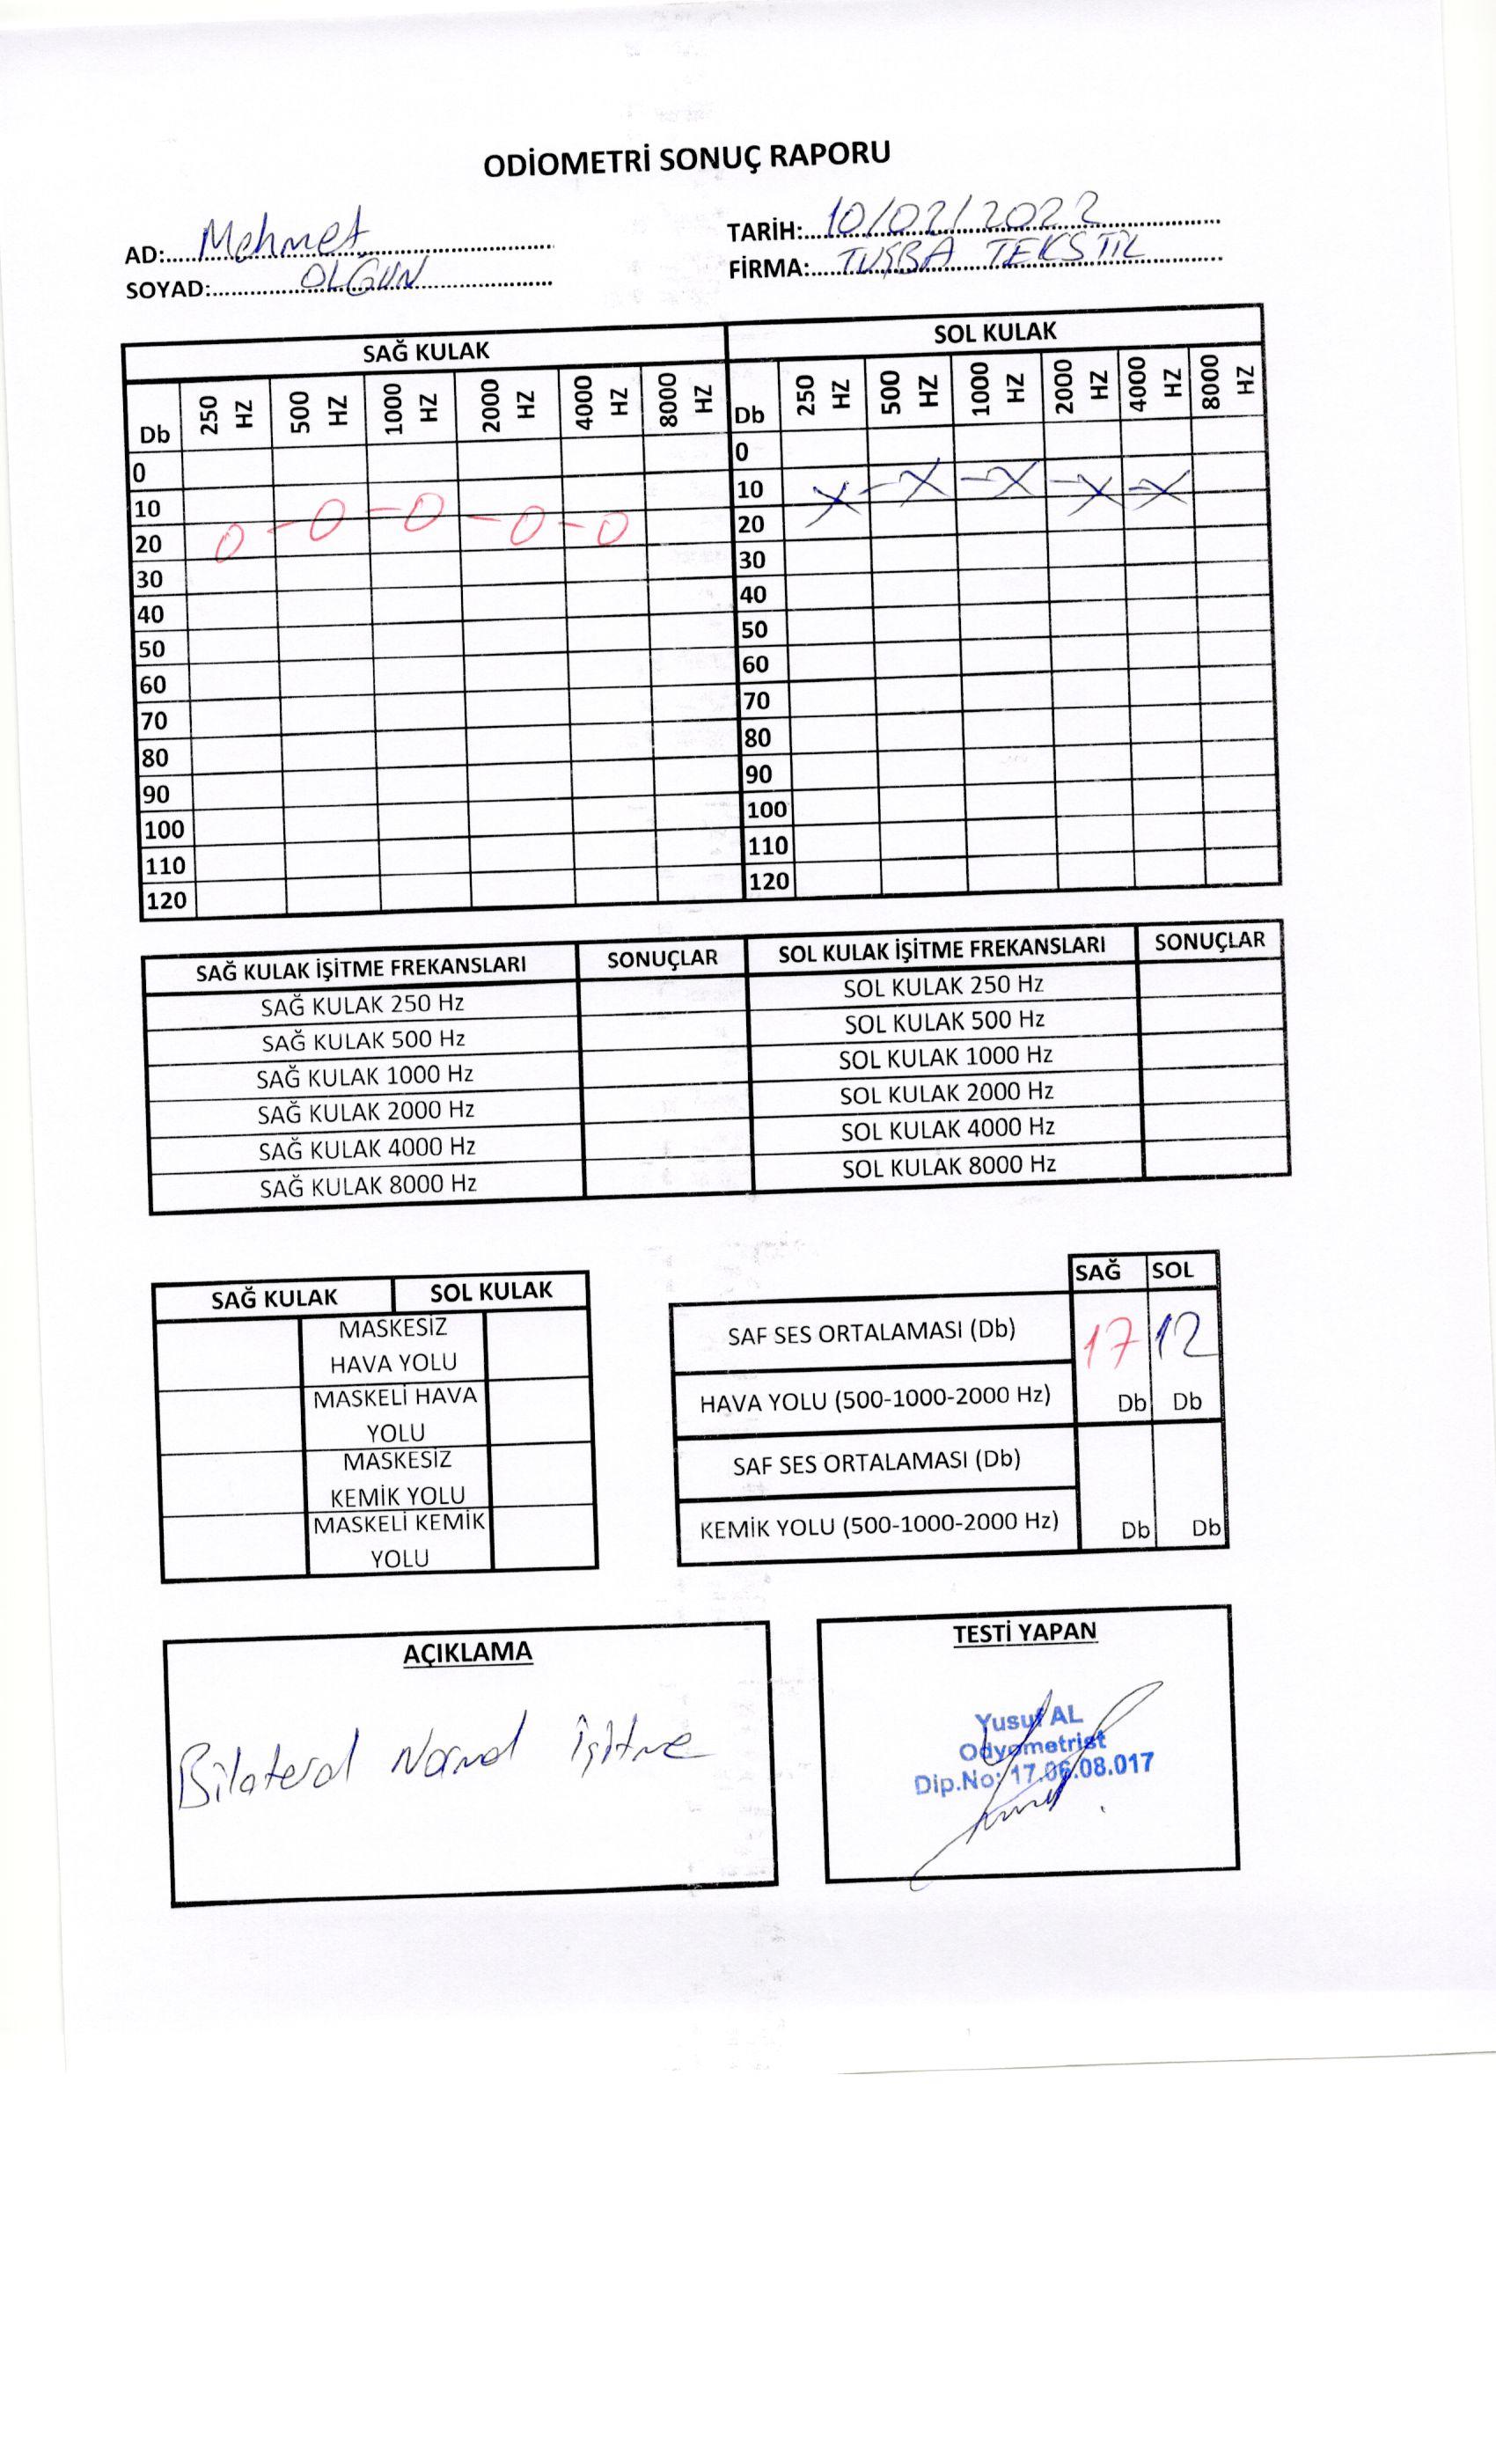 ODİOMETRİ SONUÇ RAPORU
AD: Mehmet
SOYAD: OLĞUN
TARİH: 10/02/2022
FİRMA: TUŞBA TEKSTİL
SAĞ KULAK SOL KULAK
Db 250 HZ 500 HZ 1000 HZ 2000 HZ 4000 HZ 8000 HZ Db 250 HZ 500 HZ 1000 HZ 2000 HZ 4000 HZ 8000 HZ
0 0
10 10
20 20
30 30
40 40
50 50
60 60
70 70
80 80
90 90
100 100
110 110
120 120
SAĞ KULAK İŞİTME FREKANSLARI SONUÇLAR SOL KULAK İŞİTME FREKANSLARI SONUÇLAR
SAĞ KULAK 250 Hz SOL KULAK 250 Hz
SAĞ KULAK 500 Hz SOL KULAK 500 Hz
SAĞ KULAK 1000 Hz SOL KULAK 1000 Hz
SAĞ KULAK 2000 Hz SOL KULAK 2000 Hz
SAĞ KULAK 4000 Hz SOL KULAK 4000 Hz
SAĞ KULAK 8000 Hz SOL KULAK 8000 Hz
SAĞ KULAK SOL KULAK
MASKESİZ
HAVA YOLU
MASKELİ HAVA
YOLU
MASKESİZ
KEMİK YOLU
MASKELİ KEMİK
YOLU
SAĞ SOL
SAF SES ORTALAMASI (Db) 17 12
HAVA YOLU (500-1000-2000 Hz) Db Db
SAF SES ORTALAMASI (Db)
KEMİK YOLU (500-1000-2000 Hz) Db Db
AÇIKLAMA
Bilateral Normal işitme
TESTİ YAPAN
Yusuf AL
Odyometrist
Dip.No: 17.06.08.017